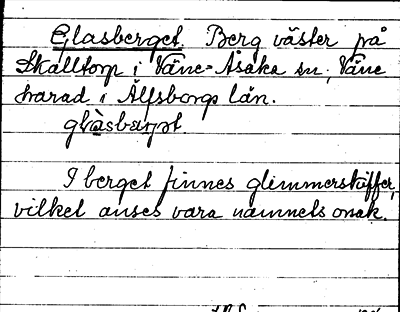 Glasberget. Berg väster på
Skälltorp i Väne-Åsaka sn, Väne
harad i Älfsborgs län.
glàsbärjet.
I berget finnes glimmerskiffer,
vilket anses vara namnets orsak.